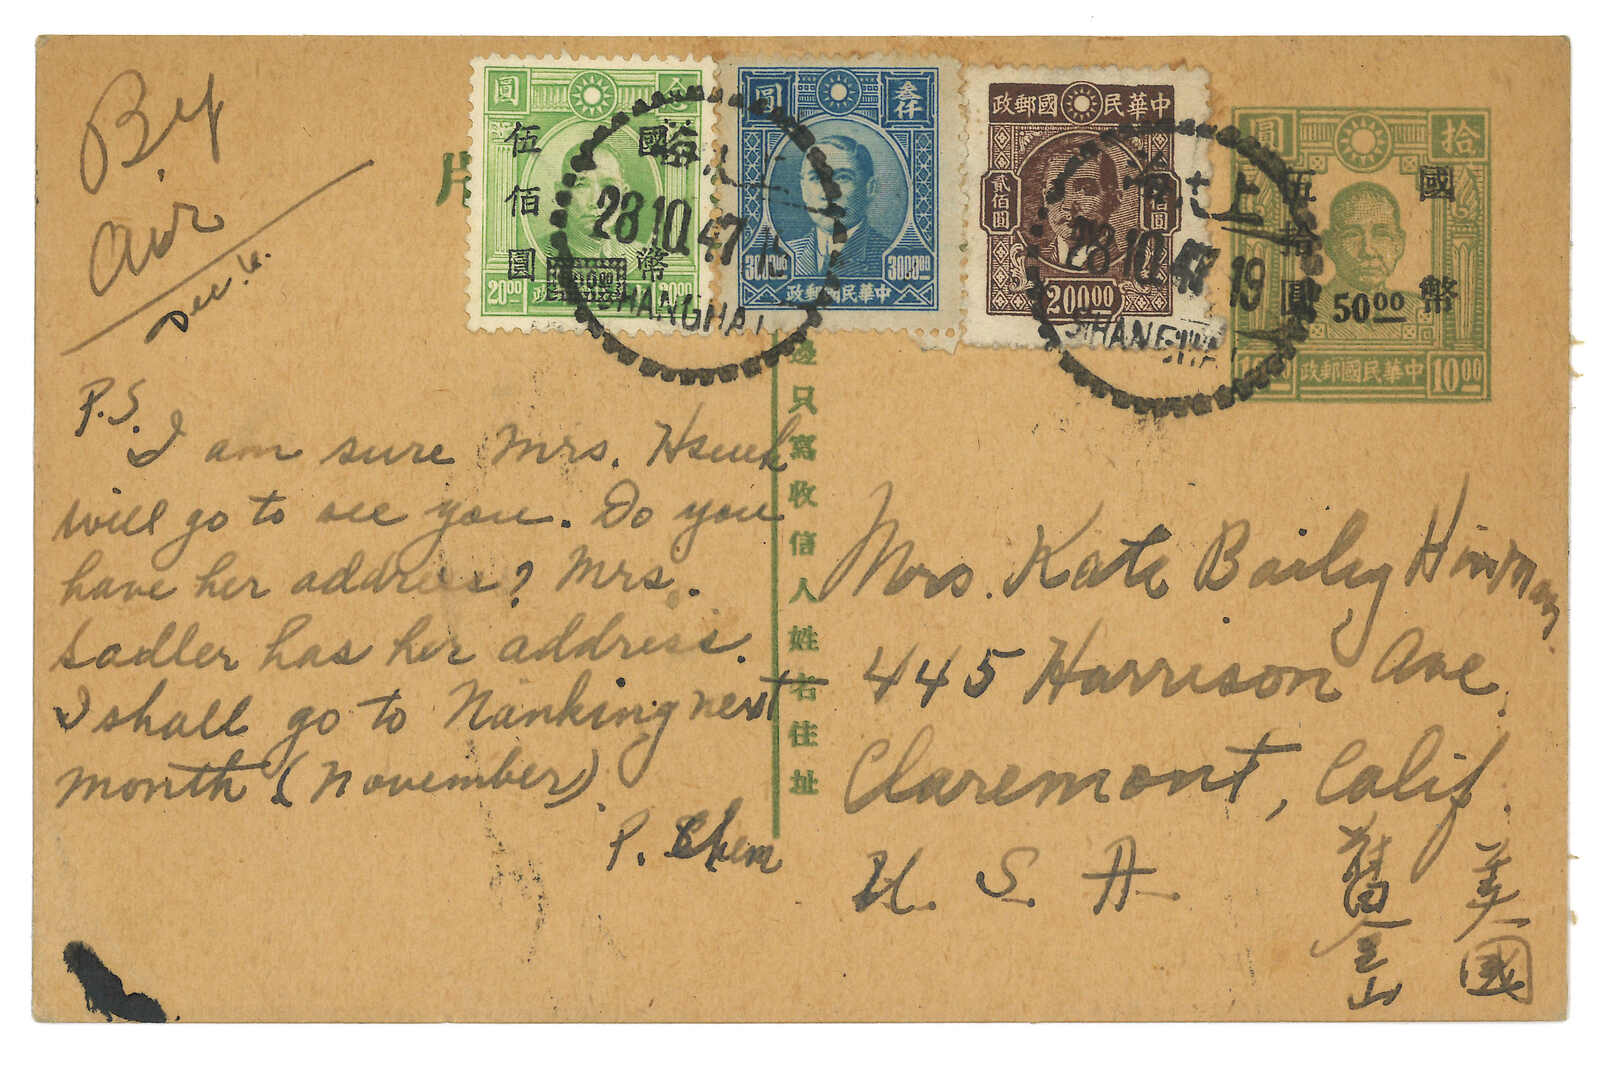 By
Air
P.S.
I am sure Mrs. Hsueh
will go to see you. Do you
have her address? Mrs.
Sadler has her address.
I shall go to Nanking next
month (November).
P. Chen
片
圓
國幣
伍佰圓
20.00
20.00
圓
叁仟
3000.00
3000.00
中華民國郵政
中華民國郵政
貳佰圓
200.00
圓
拾
國幣
伍拾圓
50.00
10.00
中華民國郵政
10.00
上海
28.10.47
SHANGHAI
上海
28.10.47.19
SHANGHAI
邊只寫收信人姓名住址
Mrs. Kate Baily Hinman
445 Harrison Ave.
Claremont, Calif.
U. S. A.
美國
舊金山